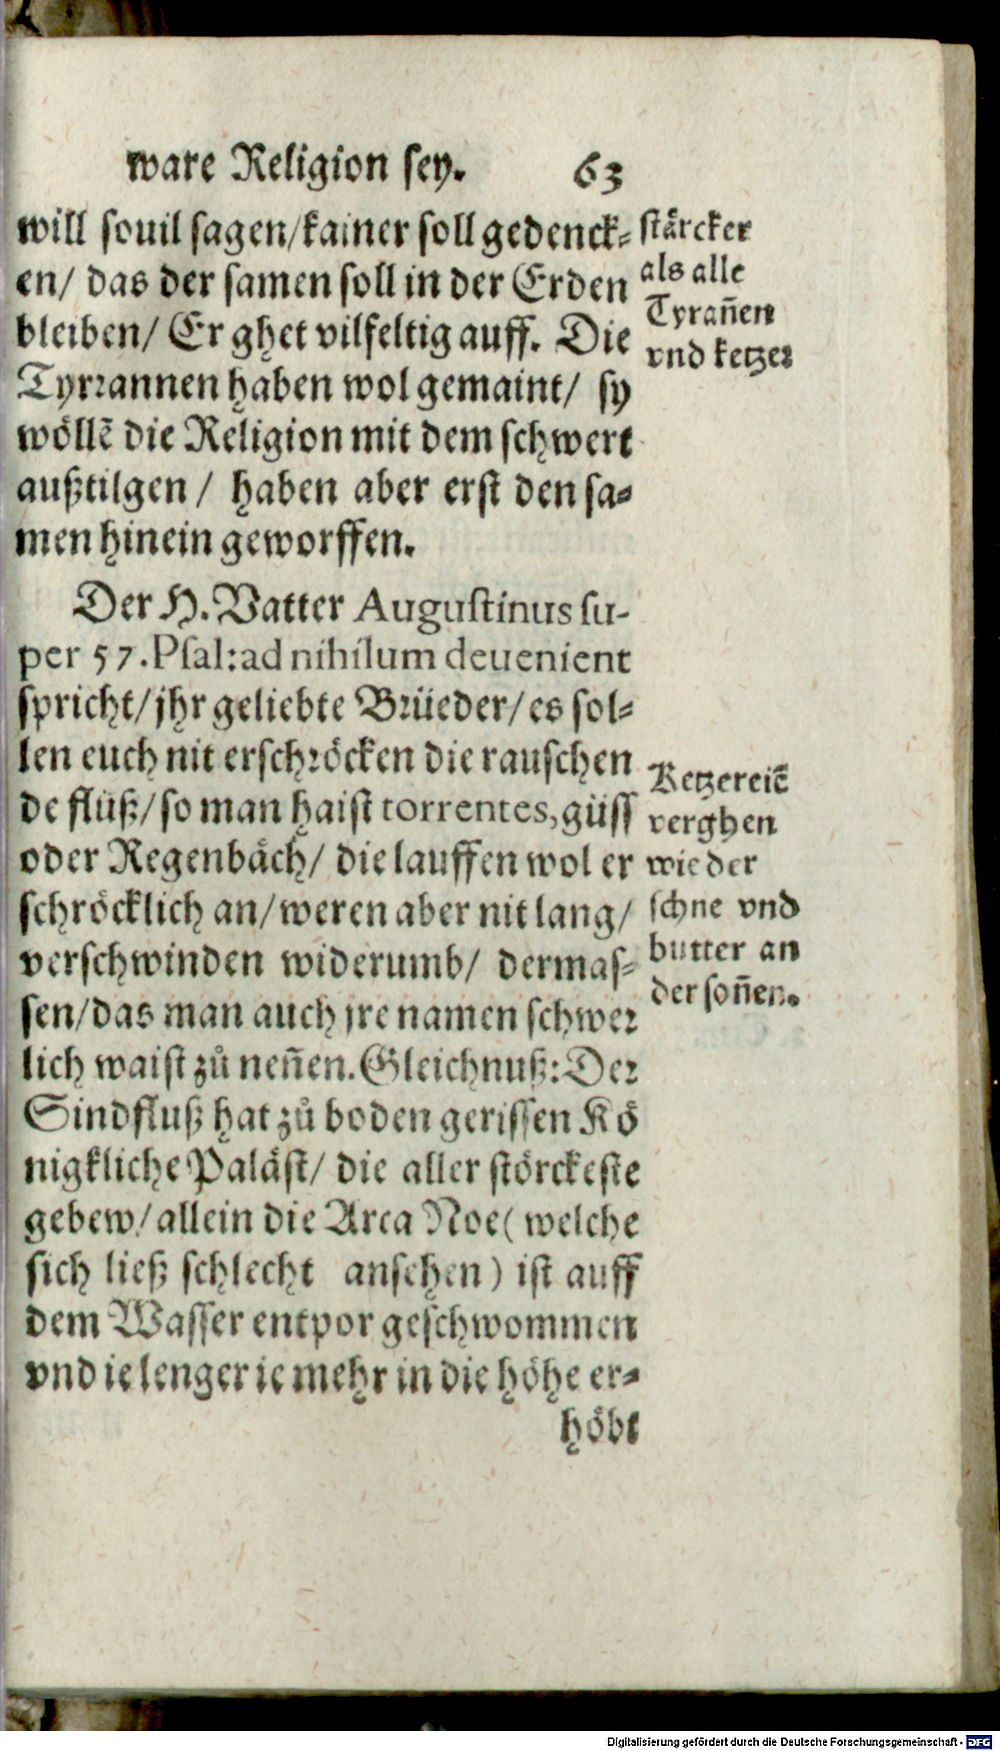 ware Religion sey. 63
will souil sagen/kainer soll gedenck-
en/ das der samen soll in der Erden
bleiben/ Er ghet vilfeltig auff. Die
Tyrrannen haben wol gemaint/ sy
wöllē die Religion mit dem schwert
außtilgen / haben aber erst den sa-
men hinein geworffen.
Der H. Vatter Augustinus su-
per 57. Psal: ad nihilum deuenient
spricht/jhr geliebte Brüeder/es sol-
len euch nit erschröcken die rauschen
de flüß/so man haist torrentes, güss
oder Regenbäch/ die lauffen wol er
schröcklich an/weren aber nit lang/
verschwinden widerumb/ dermas-
sen/das man auch jre namen schwer
lich waist zů neñen. Gleichnuß: Der
Sindfluß hat zů boden gerissen Kö
nigkliche Paläst/ die aller störckeste
gebew/allein die Arca Noe( welche
sich ließ schlecht ansehen) ist auff
dem Wasser entpor geschwommen
vnd ie lenger ie mehr in die höhe er-
höbt
stärcker
als alle
Tyrañen
vnd ketzer
Ketzereiē
verghen
wie der
schne vnd
butter an
der soñen.
Digitalisierung gefördert durch die Deutsche Forschungsgemeinschaft - DFG